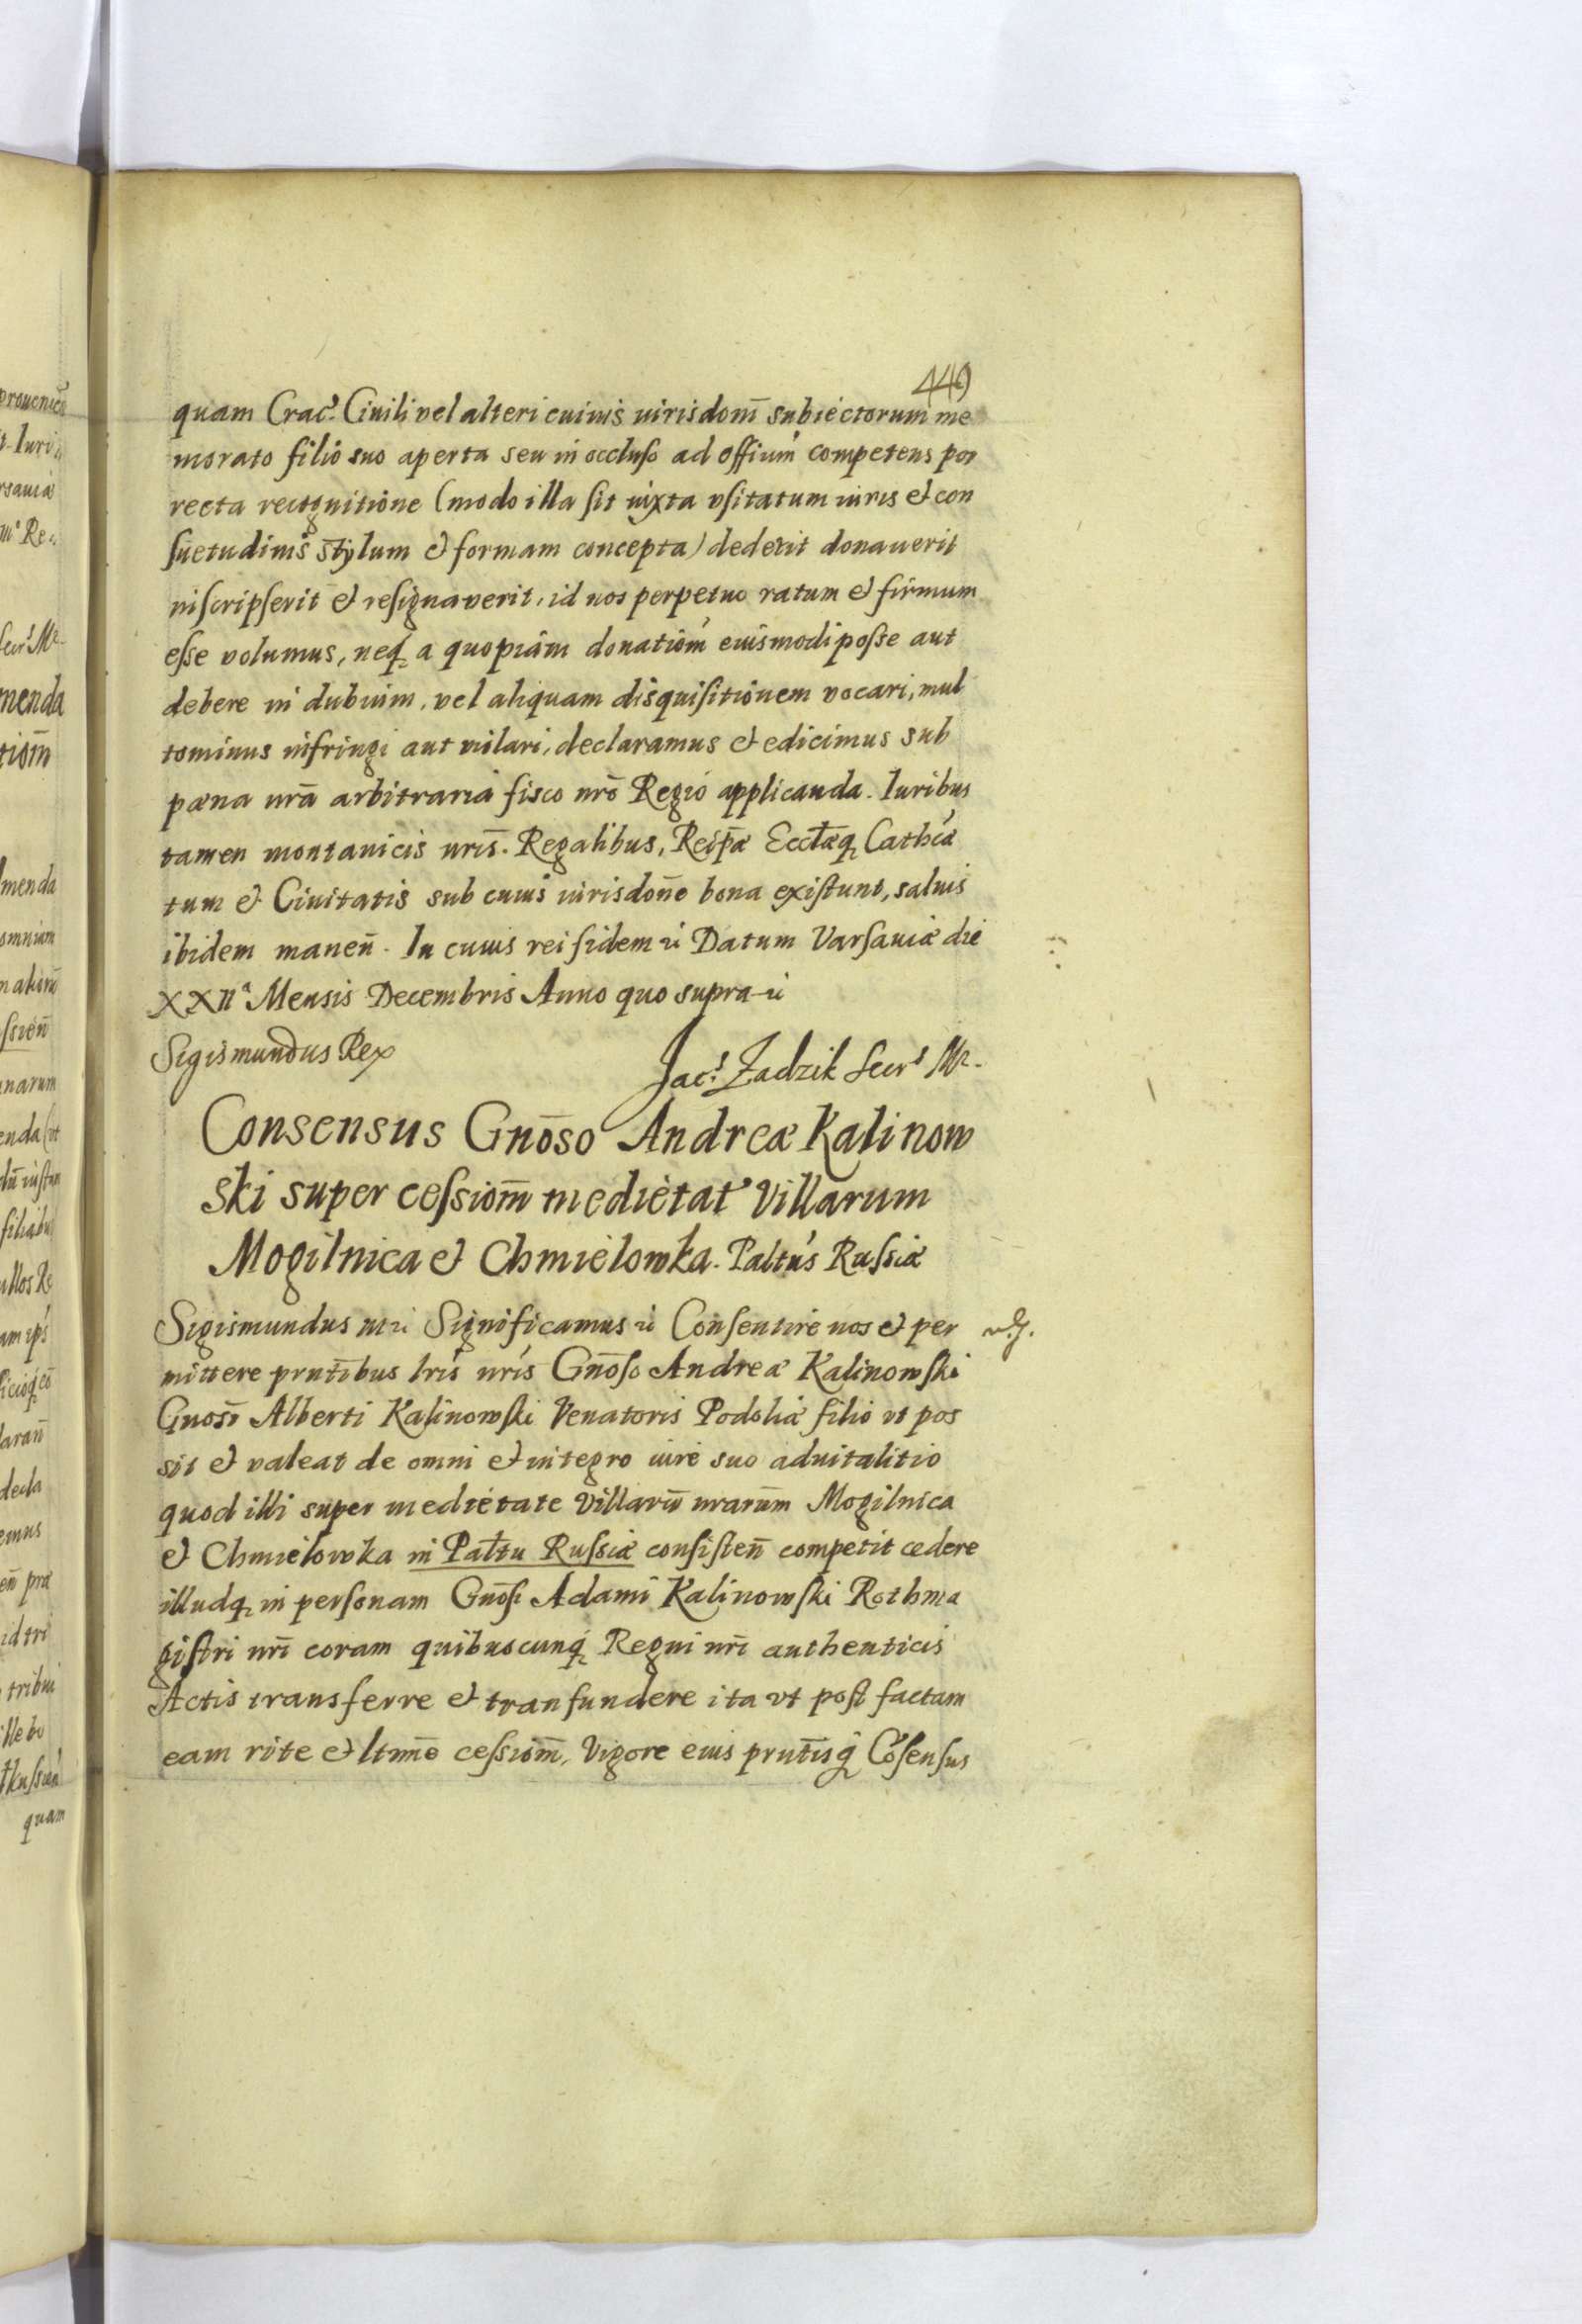 449
quam Crac: Ciuili vel alteri cuiuis iurisdom̃ subiectorum me
morato filio suo aperta seu in occluso ad offium competens por
recta recognitione (modo illa sit iuxta vsitatum iuris et con
suetudinis stylum et formam concepta) dederit donauerit
inscripserit et resignaverit, id nos perpetuo ratum et firmum
esse volumus, neq̃ a quopiam donatiom̃ eiusmodi posse aut
debere in dubium, vel aliquam disquisitionem vocari, mul
tominus infringi aut violari, declaramus et edicimus sub
pœna nr̃a arbitraria fisco nr̃o Regio applicanda. Iuribus
tamen montanicis nr̃is. Regalibus, Reip̃æ Eccl̃æq̃ Cathẽa
tum et Ciuitatis sub cuius iurisdoñe bona existunt, saluis
ibidem maneñ. In cuius rei fidem ić Datum Varsauiæ die
XXIIª Mensis Decembris Anno quo supra ić
Sigismundus Rex
Jac: Zadzik Secr̃s Mr.
Consensus Gño͠so Andreæ Kalinow
ski super cessiom̃ medietat' Villarum
Mogilnica et Chmielowka. Palt̃us Russiæ
Sigismundus III ić Significamus ić Consentire nos et per
mittere pnt̃ibus l̃ris nr̃is Gño͠so Andreæ Kalinowski
Gnosĩ Alberti Kalinowski Venatoris Podoliæ filio vt pos
sit et valeat de omni et integro iure suo aduitalitio
quod illi super medietate Villarũ nrarũm Mogilnica
et Chmielowka in Palt̃u Russiæ consisteñ competit cedere
illudq̃ in personam Gño͠si Adami Kalinowski Rothma
gistri nr̃i coram quibuscunq̃ Regni nr̃i authenticis
Actis transferre et transfundere ita vt post factam
eam rite et ltim̃e cessiom̃, Vigore eius pnt̃isq̃ Cõsensus